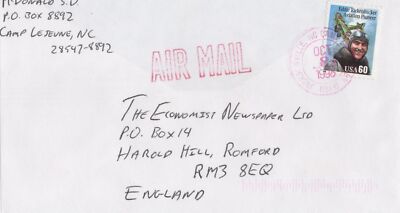 McDONALD S.D.
P.O. BOX 8892
CAMP LEJEUNE, NC
28547-8892
Eddie Rickenbacker
Aviation Pioneer
USA 60
OCT
AIR MAIL
THE ECONOMIST NEWSPAPER LTD
P.O. BOX 14
HAROLD HILL, ROMFORD
RM3 8EQ
ENGLAND